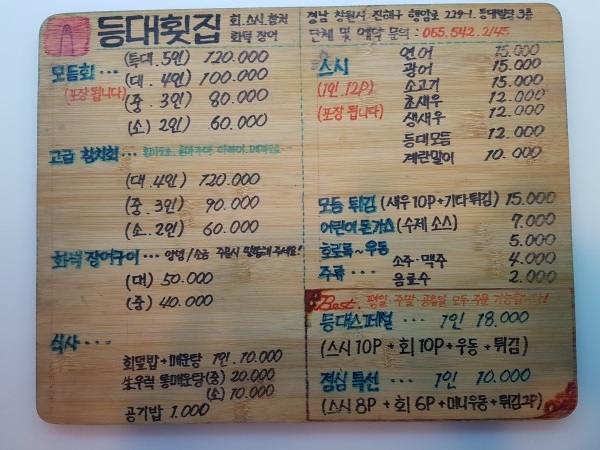 등대횟집 회.스시.참치
화덕 장어
모듬회... (특대.5인) 120.000
(포장됩니다) (대.4인) 100.000
(중.3인) 80.000
(소) 2인) 60.000
고급 참치회...
(대.4인) 120.000
(중.3인) 90.000
(소.2인) 60.000
화덕 장어구이... 양념/소금 주문시 말씀해주세요!
(대) 50.000
(중) 40.000
식사....
회덮밥+매운탕 1인. 10.000
生우럭 통매운탕(중) 20.000
(소) 10.000
공기밥 1.000
경남 창원시 진해구 행암로 229-1. 등대빌딩 3층
단체 및 예약 문의 : 055.542.2145
스시 연어 15.000
(1인.12P) 광어 15.000
소고기 15.000
(포장 됩니다) 초새우 12.000
생새우 12.000
등대모듬 12.000
계란말이 10.000
모듬 튀김 (새우10P+기타튀김) 15.000
어린이 돈가스 (수제 소스) 7.000
호로록~우동 5.000
주류... 소주·맥주 4.000
음료수 2.000
Best. 평일 주말 공휴일 모두 주문 가능합니다!
등대스페셜 ... 1인 18.000
(스시 10P + 회 10P + 우동 + 튀김)
점심 특선 ... 1인 10.000
(스시 8P + 회 6P + 미니우동 + 튀김2P)